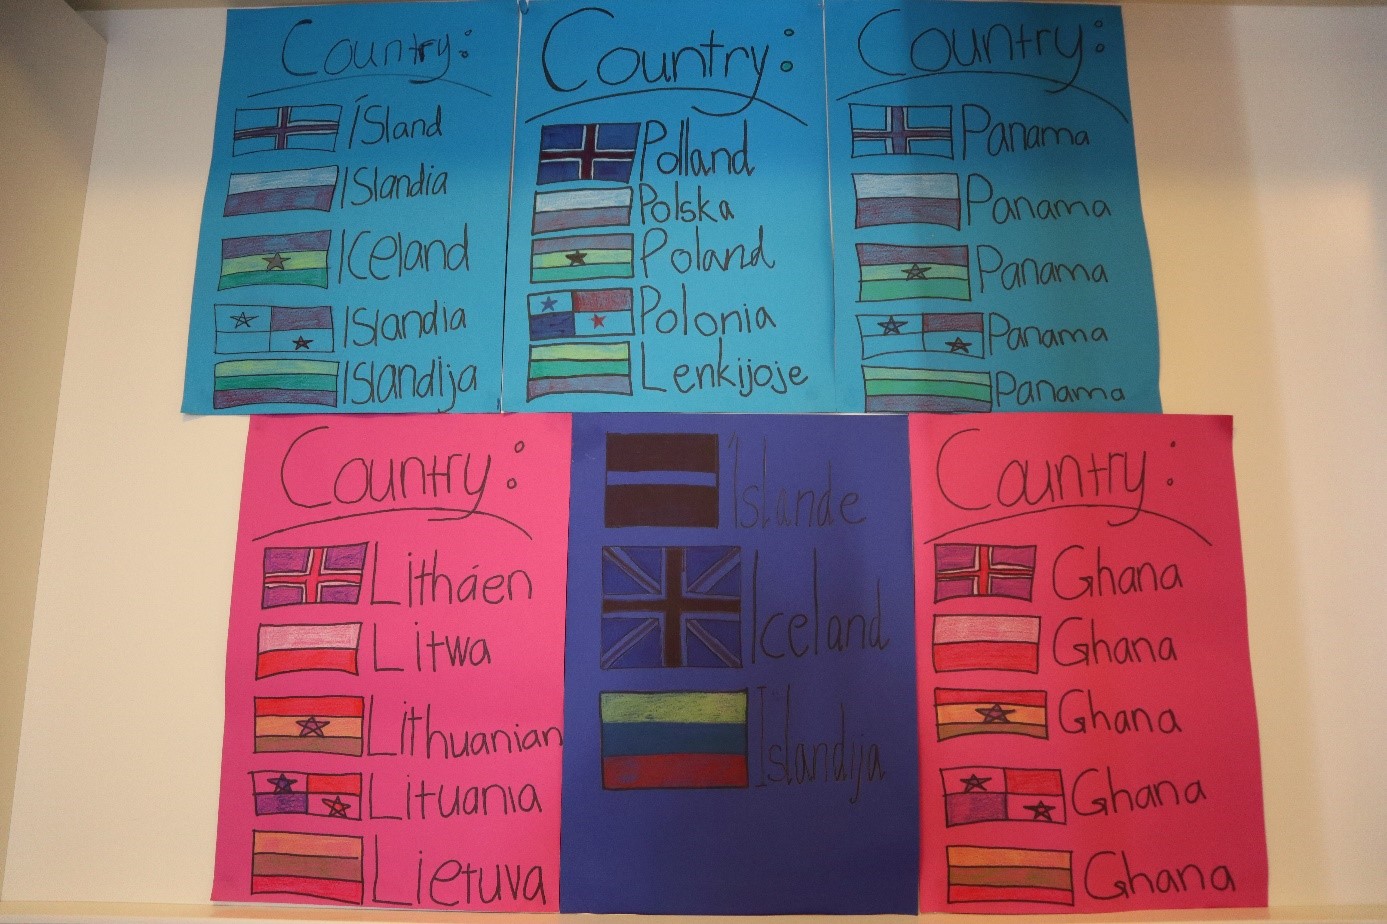 Country:
Ísland
Islandia
Iceland
Islandia
Islandija
Country:
Polland
Polska
Poland
Polonia
Lenkijoje
Country:
Panama
Panama
Panama
Panama
Panama
Country:
Litháen
Litwa
Lithuanian
Lituania
Lietuva
Íslande
Iceland
Islandija
Country:
Ghana
Ghana
Ghana
Ghana
Ghana